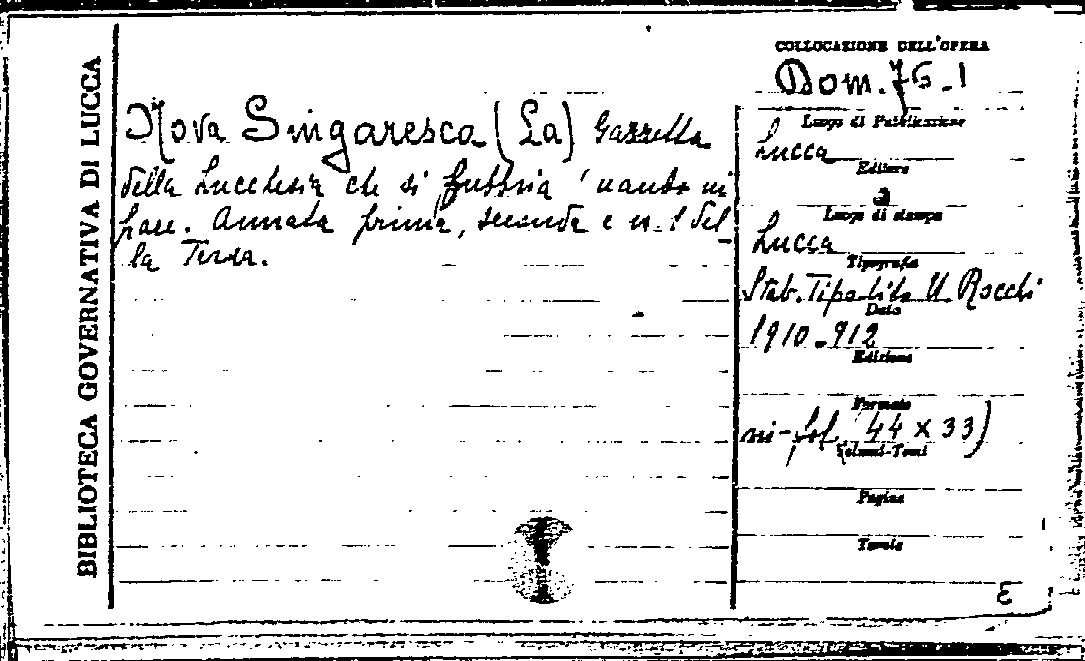 BIBLIOTECA GOVERNATIVA DI LUCCA
Nova Singaresca (La) Gazzetta
della Lucchesia che si
pare. Annata prima, seconda e n. 1 del-
la Terza.
COLLOCAZIONE DELL'OPERA
Dom. 76.1
Luogo di Pubblicazione
Lucca
Editore
Luogo di stampa
Lucca
Tipografia
Stab. Tipolito U. Rocchi
Data
1910-912
Edizione
Formato
in-fol. (44 x 33)
Volumi-Tomi
Pagine
Tavole
E